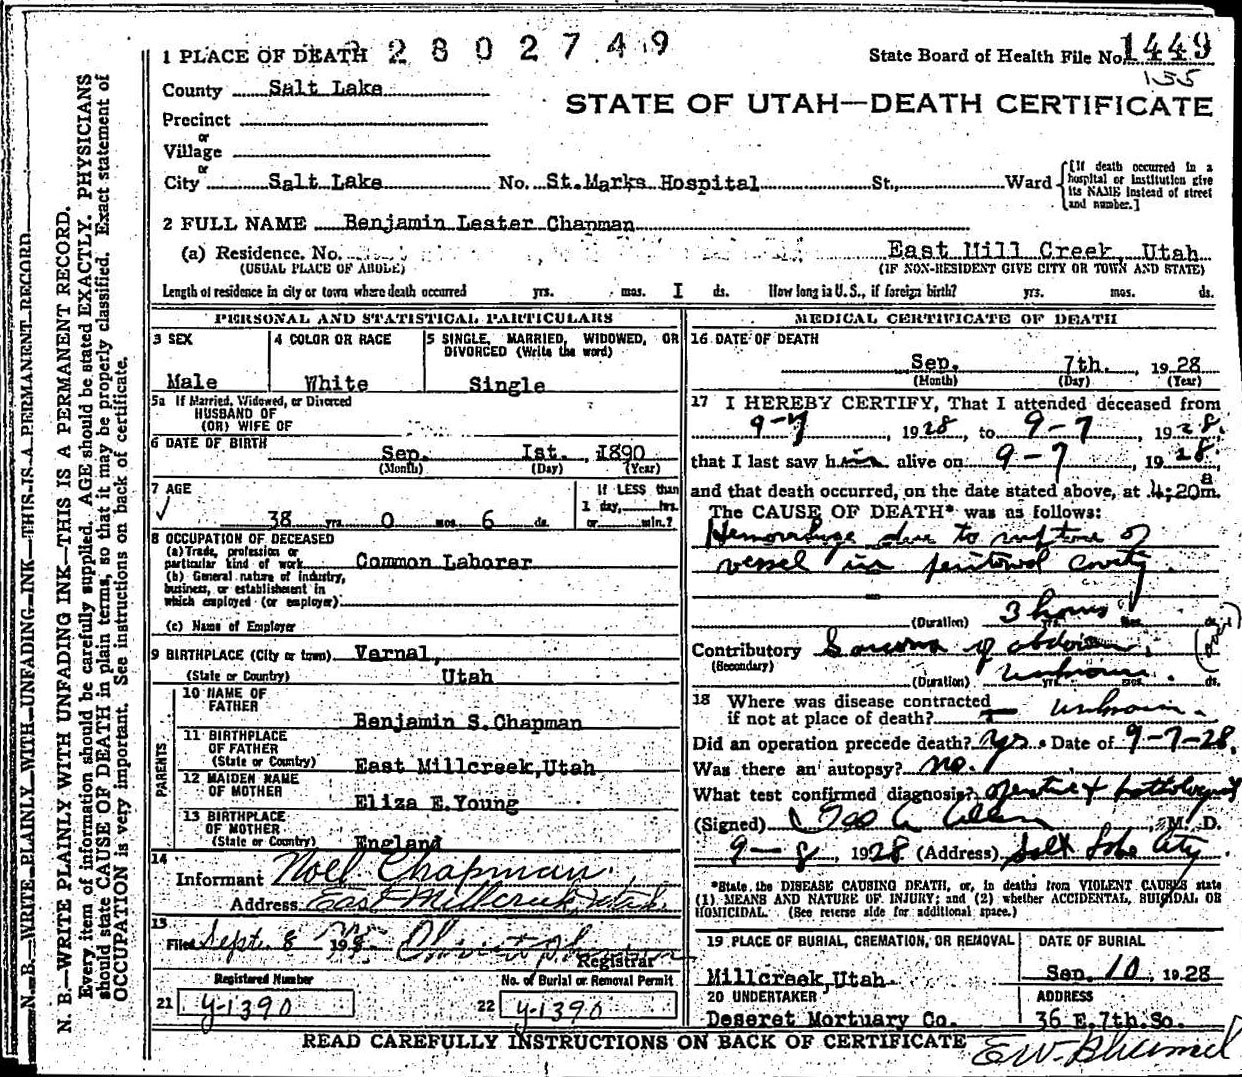 1 PLACE OF DEATH 2802749
State Board of Health File No. 1449
135
County Salt Lake
STATE OF UTAH—DEATH CERTIFICATE
Precinct
or
Village
or
City Salt Lake No. St.Marks Hospital St., Ward
[If death occurred in a hospital or institution give its NAME instead of street and number.]
2 FULL NAME Benjamin Lester Chapman
(a) Residence. No. East Mill Creek, Utah
(USUAL PLACE OF ABODE) (IF NON-RESIDENT GIVE CITY OR TOWN AND STATE)
Length of residence in city or town where death occurred yrs. mos. I ds. How long in U.S., if foreign birth? yrs. mos. ds.
PERSONAL AND STATISTICAL PARTICULARS
3 SEX
Male
4 COLOR OR RACE
White
5 SINGLE, MARRIED, WIDOWED, OR
DIVORCED (Write the word)
Single
5a If Married, Widowed, or Divorced
HUSBAND OF
(OR) WIFE OF
6 DATE OF BIRTH
Sep. 1st. , 1890
(Month) (Day) (Year)
7 AGE
38 yrs. 0 mos. 6 ds.
If LESS than
1 day, hrs.
or min.?
8 OCCUPATION OF DECEASED
(a) Trade, profession or
particular kind of work Common Laborer
(b) General nature of industry,
business, or establishment in
which employed (or employer)
(c) Name of Employer
9 BIRTHPLACE (City or town) Vernal,
(State or Country) Utah
PARENTS
10 NAME OF
FATHER
Benjamin S.Chapman
11 BIRTHPLACE
OF FATHER
(State or Country) East Millcreek,Utah
12 MAIDEN NAME
OF MOTHER
Eliza E.Young
13 BIRTHPLACE
OF MOTHER
(State or Country) England
14
Informant Noel Chapman
Address East Millcreek, Utah.
15
Filed Sept. 8 192
Registrar
Registered Number
21 y-1390
No. of Burial or Removal Permit
22 y-1390
MEDICAL CERTIFICATE OF DEATH
16 DATE OF DEATH
Sep. 7th. , 1928
(Month) (Day) (Year)
17 I HEREBY CERTIFY, That I attended deceased from
9-7 , 1928, to 9-7 , 1928.
that I last saw him alive on 9-7 , 1928,
and that death occurred, on the date stated above, at 4:20am.
The CAUSE OF DEATH* was as follows:
Hemorrhage due to rupture of
vessel in peritoneal cavity
(Duration) 3 hours yrs. mos. ds.
Contributory Sarcoma of abdomen.
(Secondary)
(Duration) unknown. yrs. mos. ds.
18 Where was disease contracted
if not at place of death? unknown.
Did an operation precede death? Yes. Date of 9-7-28.
Was there an autopsy? no.
What test confirmed diagnosis? operative & pathologist
(Signed) M. D.
9-8 1928 (Address) Salt Lake City.
*State the DISEASE CAUSING DEATH, or, in deaths from VIOLENT CAUSES state
(1) MEANS AND NATURE OF INJURY; and (2) whether ACCIDENTAL, SUICIDAL OR
HOMICIDAL. (See reverse side for additional space.)
19 PLACE OF BURIAL, CREMATION, OR REMOVAL
Millcreek,Utah.
DATE OF BURIAL
Sep. 10, 1928
20 UNDERTAKER
Deseret Mortuary Co.
ADDRESS
36 E.7th.So.
READ CAREFULLY INSTRUCTIONS ON BACK OF CERTIFICATE
N. B.—WRITE PLAINLY WITH UNFADING INK—THIS IS A PERMANENT RECORD
N. B.—WRITE PLAINLY WITH UNFADING INK—THIS IS A PERMANENT RECORD.
Every item of information should be carefully supplied. AGE should be stated EXACTLY. PHYSICIANS
should state CAUSE OF DEATH in plain terms, so that it may be properly classified. Exact statement of
OCCUPATION is very important. See instructions on back of certificate.